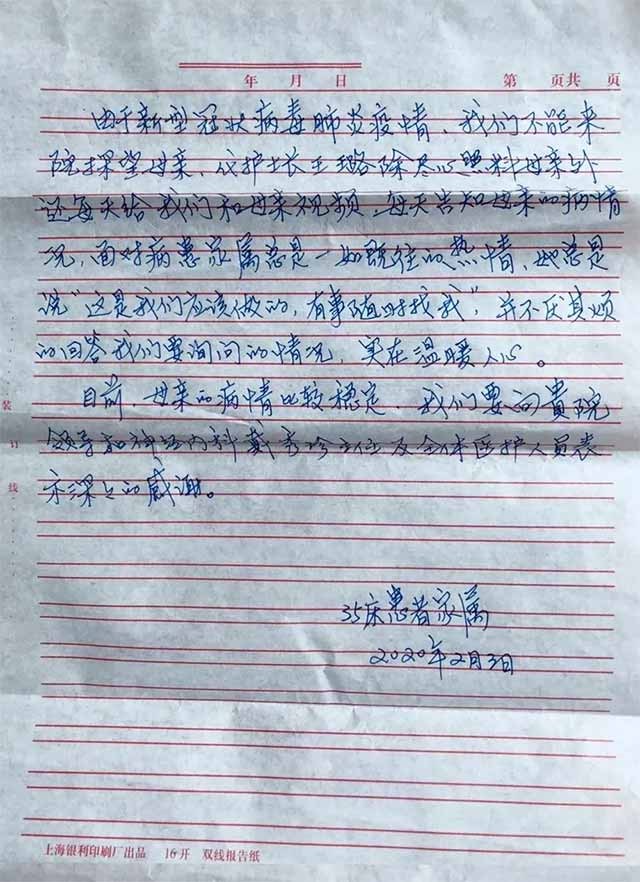 年 月 日 第 页共 页
由于新型冠状病毒肺炎疫情，我们不能来
院探望母亲，代护士长王璐除尽心照料母亲外
还每天给我们和母亲视频，每天告知母亲的病情
况，面对病患家属总是一如既往的热情，她总是
说“这是我们应该做的，有事随时找我”，并不厌其烦
的回答我们要询问的情况，实在温暖人心。
目前，母亲的病情比较稳定，我们要向貴院
领导和神经内科戴秀珍主任及全体医护人员表
示深深的感谢。
35床患者家属
2020年2月3日
装
订
线
上海银利印刷厂出品 16开 双线报告纸